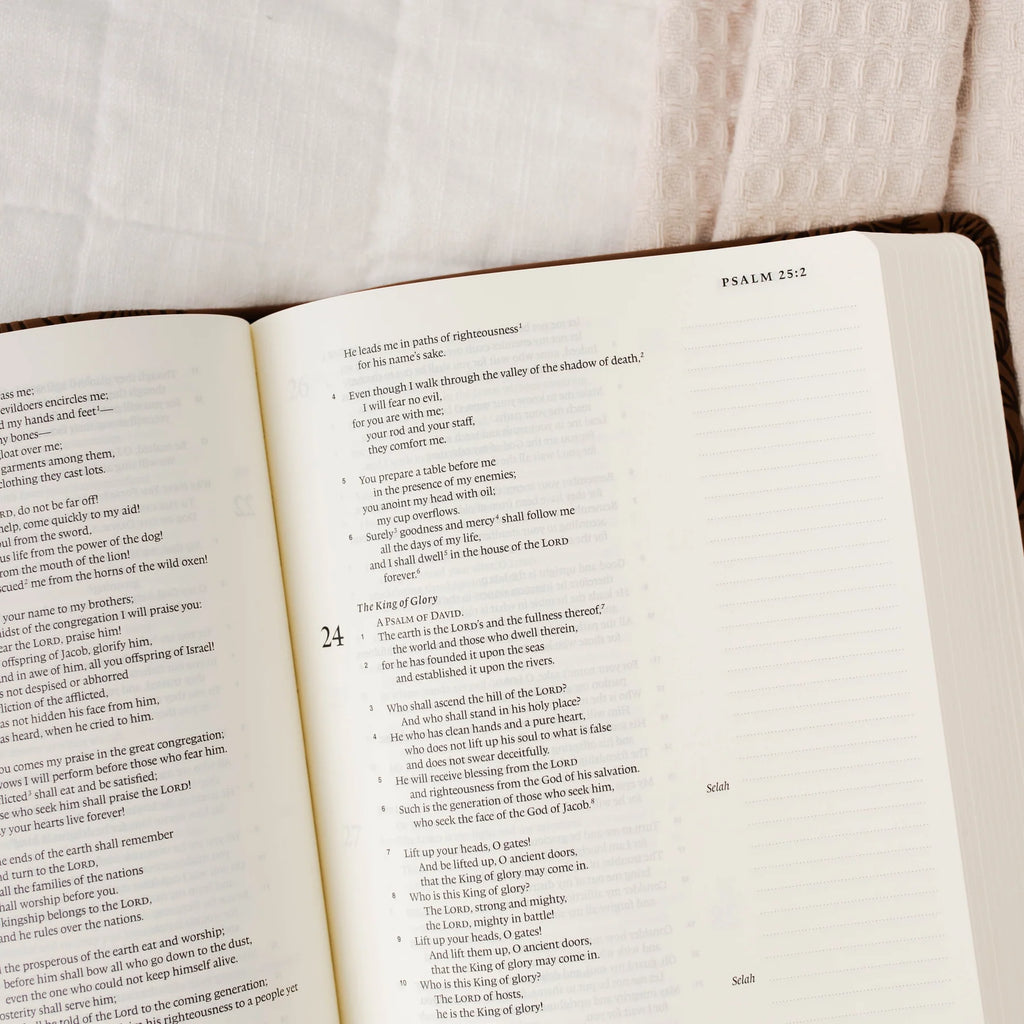 ass me;
evildoers encircles me;
d my hands and feet¹—
ny bones—
gloat over me;
garments among them,
clothing they cast lots.
RD, do not be far off!
help, come quickly to my aid!
oul from the sword,
us life from the power of the dog!
rom the mouth of the lion!
scued² me from the horns of the wild oxen!
your name to my brothers;
idst of the congregation I will praise you:
ear the LORD, praise him!
offspring of Jacob, glorify him,
nd in awe of him, all you offspring of Israel!
s not despised or abhorred
fliction of the afflicted,
as not hidden his face from him,
as heard, when he cried to him.
ou comes my praise in the great congregation;
vows I will perform before those who fear him.
flicted³ shall eat and be satisfied;
se who seek him shall praise the LORD!
y your hearts live forever!
e ends of the earth shall remember
nd turn to the LORD,
all the families of the nations
hall worship before you.
kingship belongs to the LORD,
and he rules over the nations.
l the prosperous of the earth eat and worship;
before him shall bow all who go down to the dust,
even the one who could not keep himself alive.
osterity shall serve him;
all be told of the Lord to the coming generation;
his righteousness to a people yet
PSALM 25:2
He leads me in paths of righteousness¹
for his name's sake.
4 Even though I walk through the valley of the shadow of death,²
I will fear no evil,
for you are with me;
your rod and your staff,
they comfort me.
5 You prepare a table before me
in the presence of my enemies;
you anoint my head with oil;
my cup overflows.
6 Surely³ goodness and mercy⁴ shall follow me
all the days of my life,
and I shall dwell⁵ in the house of the LORD
forever.⁶
The King of Glory
24 A PSALM OF DAVID.
1 The earth is the LORD's and the fullness thereof,⁷
the world and those who dwell therein,
2 for he has founded it upon the seas
and established it upon the rivers.
3 Who shall ascend the hill of the LORD?
And who shall stand in his holy place?
4 He who has clean hands and a pure heart,
who does not lift up his soul to what is false
and does not swear deceitfully.
5 He will receive blessing from the LORD
and righteousness from the God of his salvation.
6 Such is the generation of those who seek him,
who seek the face of the God of Jacob.⁸ Selah
7 Lift up your heads, O gates!
And be lifted up, O ancient doors,
that the King of glory may come in.
8 Who is this King of glory?
The LORD, strong and mighty,
the LORD, mighty in battle!
9 Lift up your heads, O gates!
And lift them up, O ancient doors,
that the King of glory may come in.
10 Who is this King of glory?
The LORD of hosts,
he is the King of glory! Selah